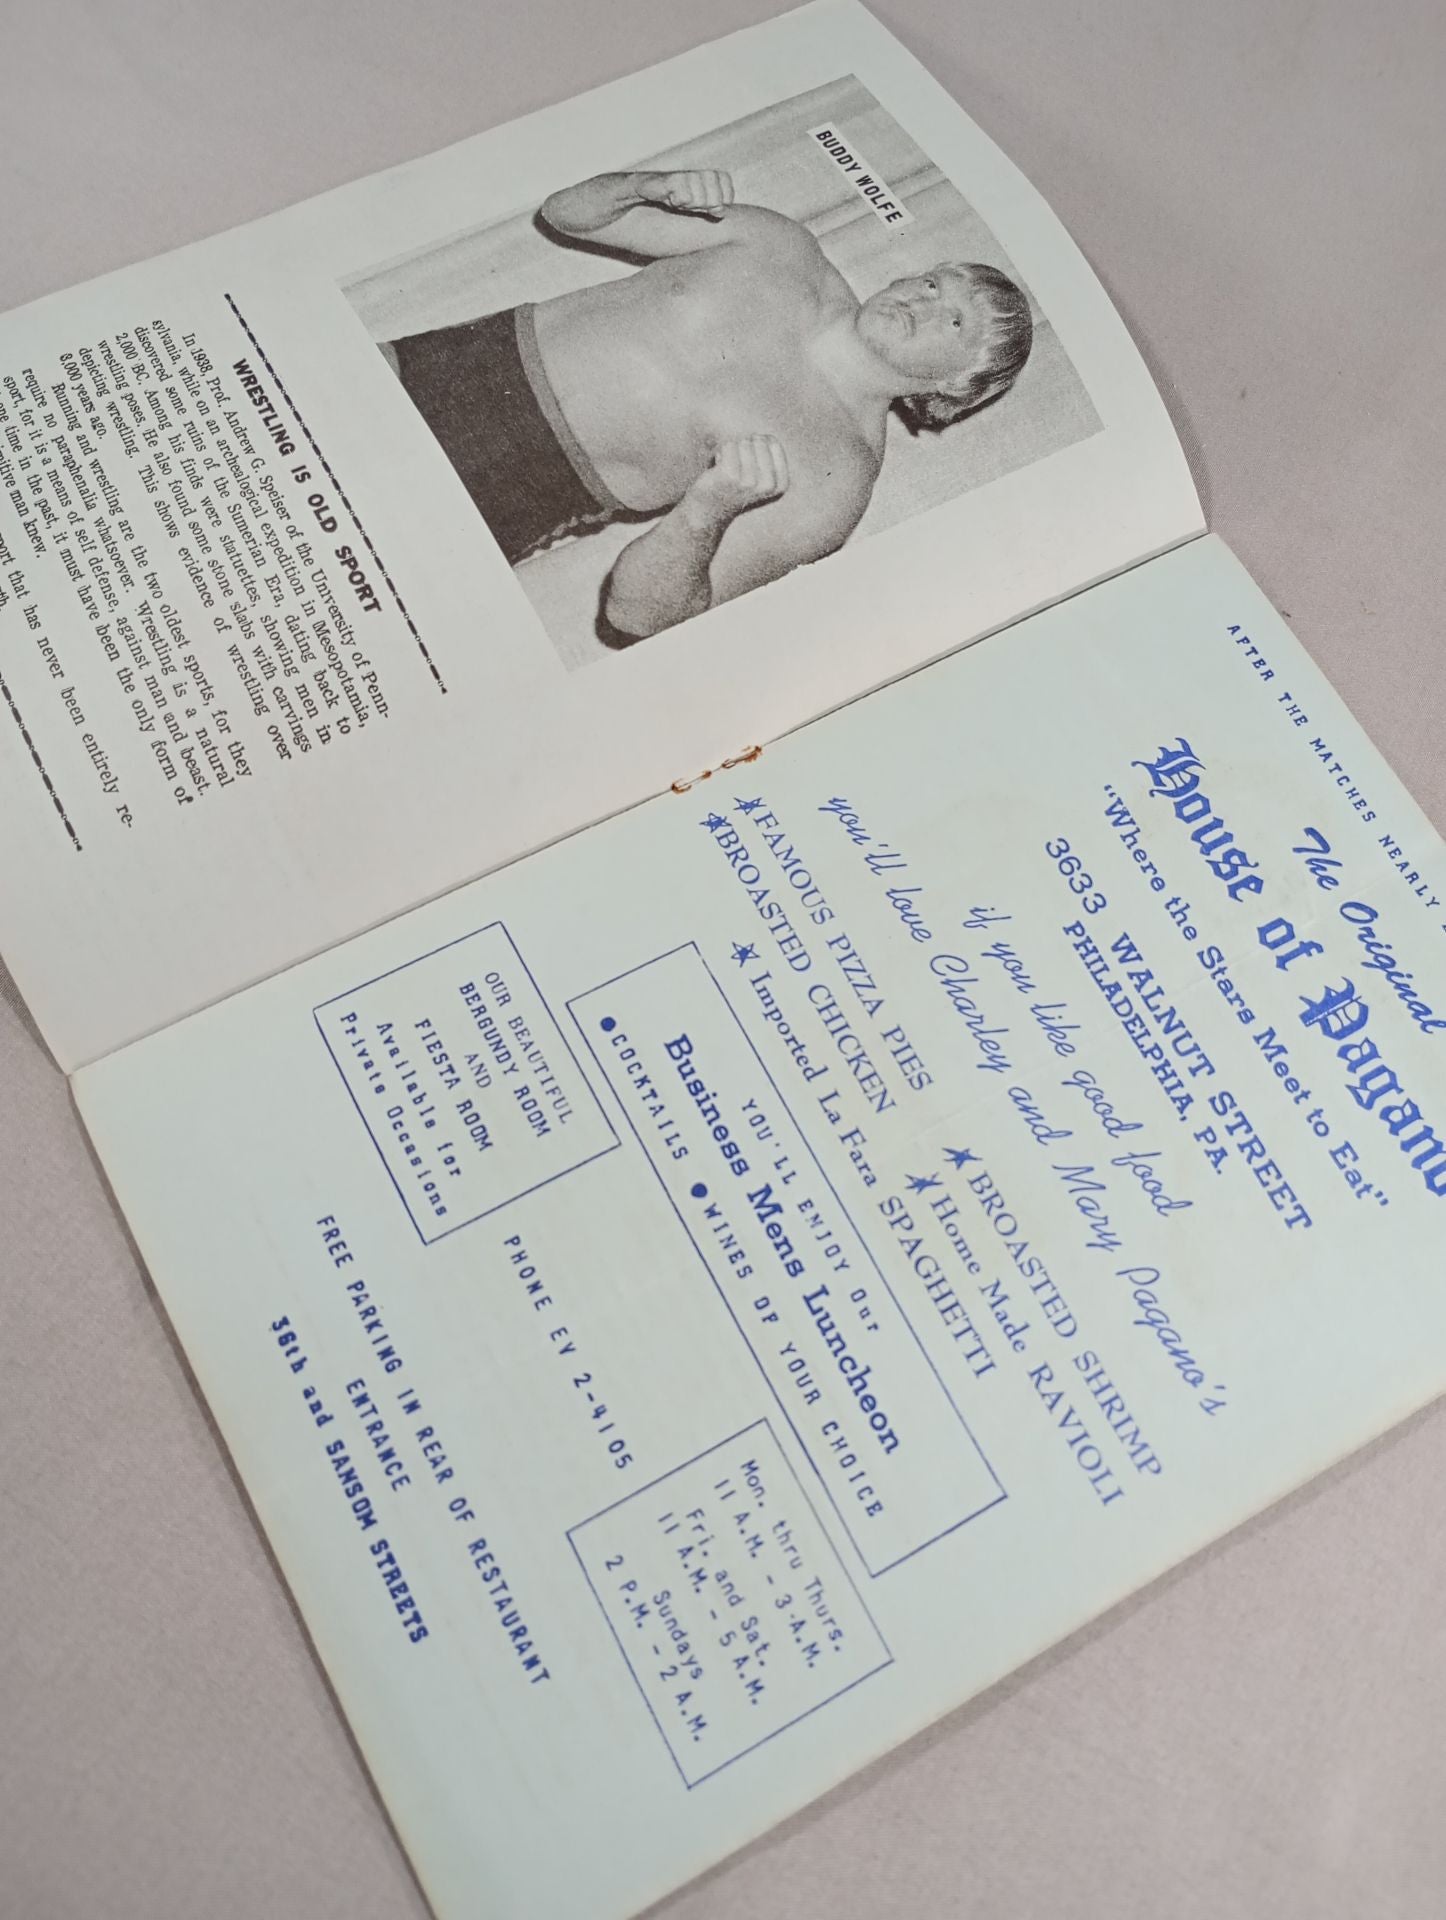 BUDDY WOLFE
WRESTLING IS OLD SPORT
In 1938, Prof. Andrew G. Speiser of the University of Penn-
sylvania, while on an archealogical expedition in Mesopotamia,
discovered some ruins of the Sumerian Era, dating back to
2,000 BC. Among his finds were statuettes, showing men in
wrestling poses. He also found some stone slabs with carvings
depicting wrestling. This shows evidence of wrestling over
8,000 years ago.
Running and wrestling are the two oldest sports, for they
require no paraphenalia whatsoever. Wrestling is a natural
sport, for it is a means of self defense, against man and beast.
one time in the past, it must have been the only form of
man knew.
that has never been entirely re-
AFTER THE MATCHES NEARLY
The Original
House of Pagano
"Where the Stars Meet to Eat"
3633 WALNUT STREET
PHILADELPHIA, PA.
if you like good food
you'll love Charley and Mary Pagano's
★ FAMOUS PIZZA PIES ★ BROASTED SHRIMP
★ BROASTED CHICKEN ★ Home Made RAVIOLI
★ Imported La Fara SPAGHETTI
YOU'LL ENJOY Our
Business Mens Luncheon
● COCKTAILS ● WINES OF YOUR CHOICE
OUR BEAUTIFUL
BERGUNDY ROOM
AND
FIESTA ROOM
Available for
Private Occasions
PHONE EV 2-4105
Mon. thru Thurs.
11 A.M. - 3 A.M.
Fri. and Sat.
11 A.M. - 5 A.M.
Sundays
2 P.M. - 2 A.M.
FREE PARKING IN REAR OF RESTAURANT
ENTRANCE
36th and SANSOM STREETS